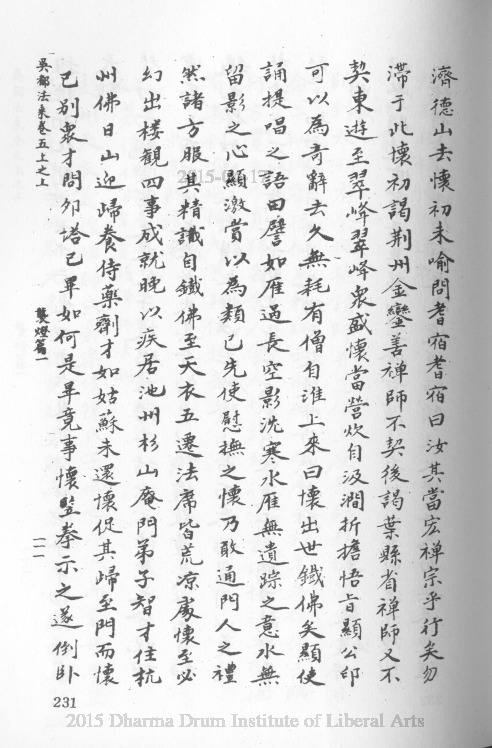 濟德山去懷初未喻問耆宿耆宿曰汝其當宏禪宗乎行矣勿
滯于此懷初謁荆州金鑾善禪師不契後謁葉縣省禪師又不
契東遊至翠峰翠峰衆盛懷當營炊自汲澗折擔悟旨顯公印
可以為奇辭去久無耗有僧自淮上來曰懷出世鐵佛矣顯使
誦提唱之語曰譬如雁過長空影沈寒水雁無遺踪之意水無
留影之心顯激賞以為類己先使慰撫之懷乃敢通門人之禮
然諸方服其精識自鐵佛至天衣五遷法席皆荒凉處懷至必
幻出楼觀四事成就晚以疾居池州杉山庵門弟子智才住杭
州佛日山迎歸養侍藥劑才如姑蘇未還懷促其歸至門而懷
已別衆才問卯塔已畢如何是畢竟事懷竪拳示之遂倒卧
吳都法乘卷五上之上
襲燈篇一
一一
231
2015 Dharma Drum Institute of Liberal Arts